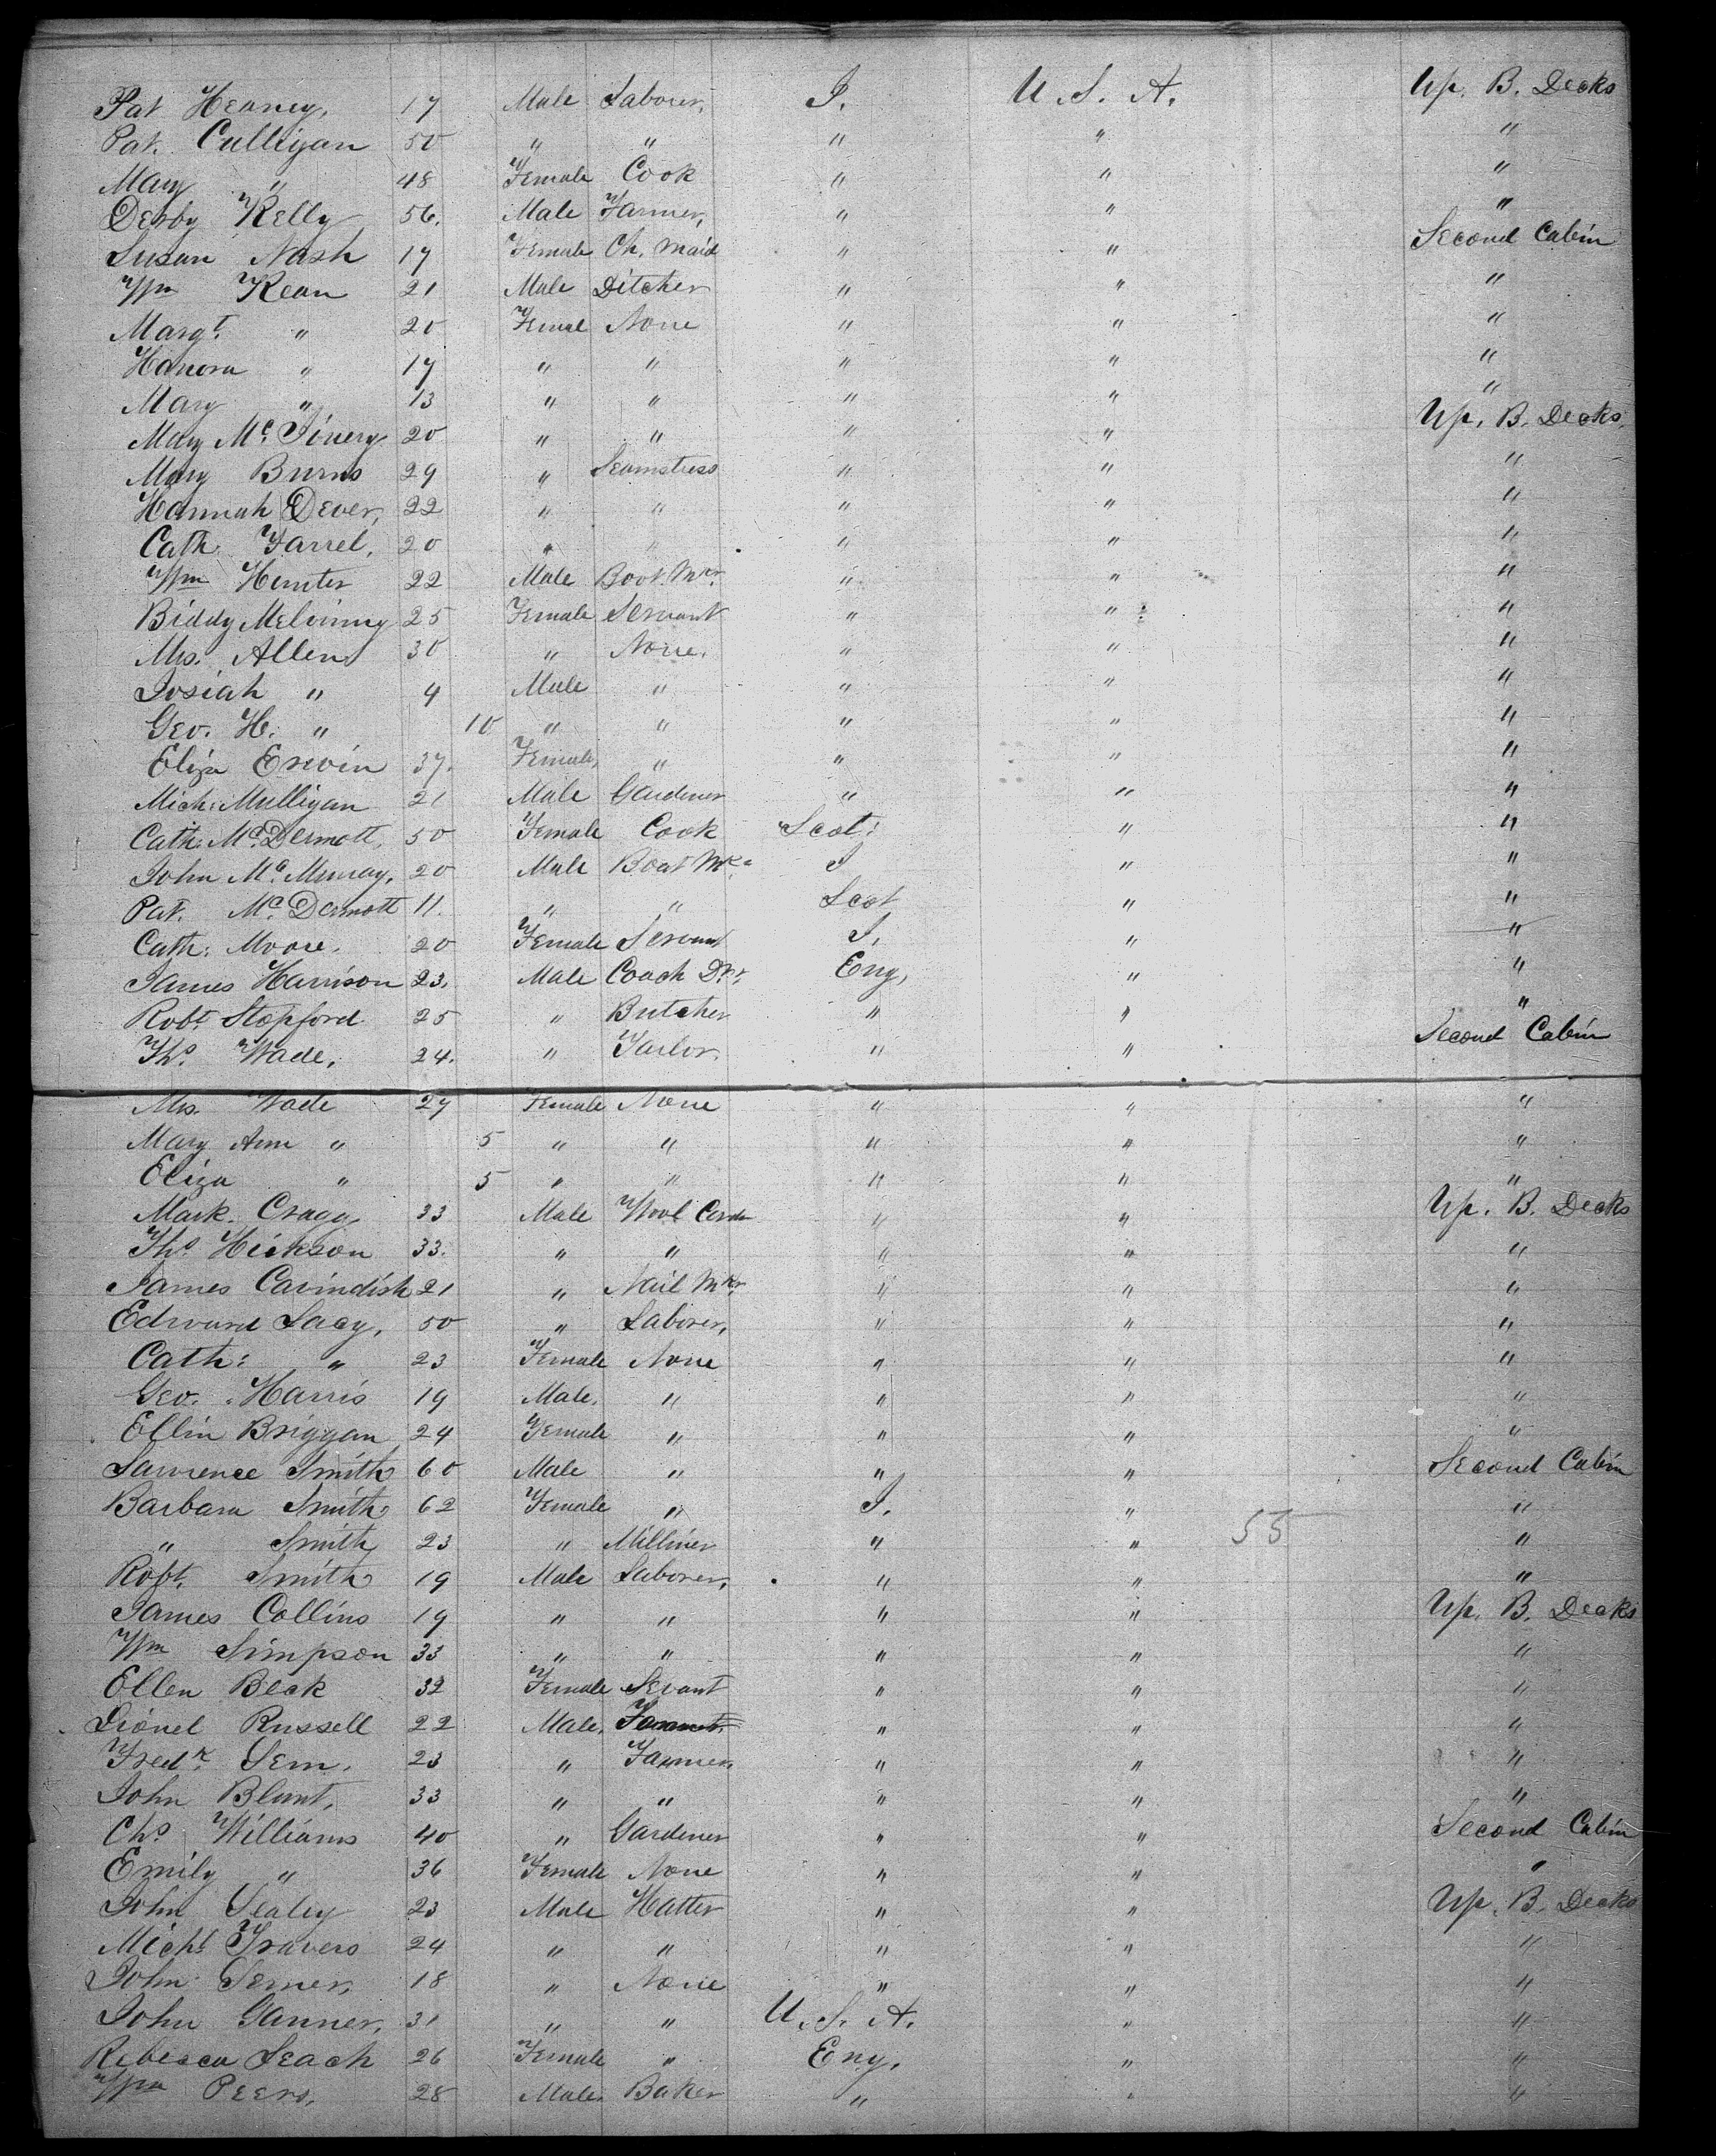 Pat Heaney, 17 Male Laborer, I. U. S. A. Up. B. Decks
Pat. Culligan 50 " " " " "
Mary " 48 Female Cook " " "
Derby Kelly 56. Male Farmer, " " "
Susan Nash 17 Female Ch. Maid " " Second Cabin
Wm Kean 21 Male Ditcher " " "
Margt. " 20 Femal None " " "
Hanora " 17 " " " " "
Mary " 13 " " " " "
Mary Mc. Finery 20 " " " " Up. B. Decks.
Mary Burns 29 " Seamstress " " "
Hannah Dever, 22 " " " " "
Cath. Farrel, 20 " " " " "
Wm Hunter 22 Male Boot. Mkr. " " "
Biddy Melvinny 25 Female Servant " " "
Mrs. Allen 30 " None. " " "
Josiah " 4 Male " " " "
Geo. H. " 10 " " " " "
Eliza Erwin 37. Female, " " " "
Mich: Mulligan 21 Male Gardener " " "
Cath: Mc. Dermott, 50 Female Cook Scot: " "
John Mc. Murray, 20 Male Boat Mkr. I " "
Pat. Mc. Dermott 11. " " Scot " "
Cath: Moore. 20 Female Servant I, " "
James Harrison 23. Male Coach Dr. Eng, " "
Robt Stopford 25 " Butcher " " "
Ths. Wade, 24. " Tailor. " " Second Cabin
Mrs. Wade 27 Female None " " "
Mary Ann " 5 " " " " "
Eliza " 5 " " " " "
Mark. Cragg, 33 Male Wool Cardr " " Up. B. Decks
Ths. Hickson 33. " " " " "
James Cavindish 21 " Nail Mkr. " " "
Edward Lacy, 50 " Laborer, " " "
Cath: " 23 Female None " " "
Geo. Harris 19 Male. " " " "
Ellin Briggan 24 Female " " " "
Lawrence Smith 60 Male " " " Second Cabin
Barbara Smith 62 Female " I. " "
" Smith 23 " Milliner " " 55 "
Robt. Smith 19 Male Laborer, " " "
James Collins 19 " " " " Up. B. Decks
Wm Simpson 33 " " " " "
Ellen Beck 32 Female Sevant " " "
Lionel Russell 22 Male, " " "
Fredk. Lem. 23 " Farmer, " " "
John Blunt, 33 " " " " "
Chs. Williams 40 " Gardener " " Second Cabin
Emily " 36 Female None " " "
John Sealey 23 Male Hatter " " Up. B. Decks
Michl. Travers 24 " " " " "
John 18 " None " " "
John Ganner, 31 " " U. S. A. " "
Rebecca Leach 26 Female " Eng. " "
Wm Peers. 28 Male. Baker " " "